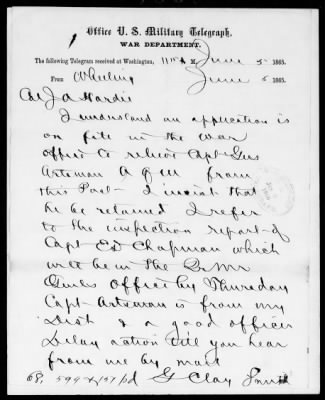 Office U. S. Military Telegraph,
WAR DEPARTMENT.
The following Telegram received at Washington, M. June 5 1865.
From Wheeling June 5 1865.
Col J A Hardie
I understand an application is
on file in the War
office to relieve Capt Gus
Artsman A Q M from
this Post - I insist that
he be retained I refer
to the inspection report of
Capt Ed Chapman which
will be in the Qr Mr
Genls Office by Thursday
Capt Artsman is from my
Dist & a good officer
Delay action till you hear
from me by mail
68, 599 & 157 pd G Clay Smith